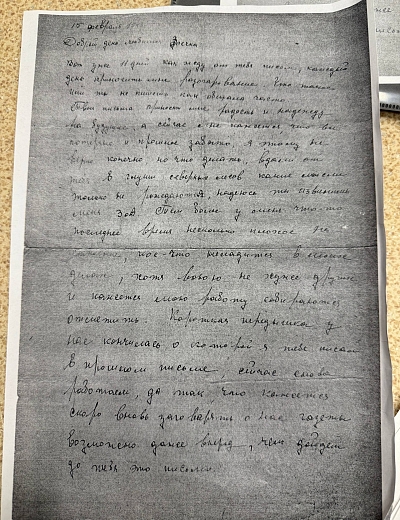 15 февраль
Добрый день любимая
Вот уже 11 дней как жду от тебя письма, каждый
день приносит мне разочарование. Что такое
или ты не пишешь как обещала часто.
Твои письма приносят мне радость и надежду
на будущее, а сейчас мне кажется что вы
и прошлое забыто, я этому не
верю конечно но что делать, вдали от
тебя. В глуши северных лесов какие мысли
только не рождаются, надеюсь ты извинишь
меня за Тем более у меня что-то
последнее время несколько плохое на
кое-что неладится в
делам, хотя воюю не хуже других
и кажется мою работу собираются
отметить. Короткая передышка у
нас кончилась о которой я тебе писал
в прошлом письме, сейчас снова
работаем, да так, что кажется
скоро вновь заговорят о нас газеты
возможно даже вперед, чем дойдет
до тебя это письмо.